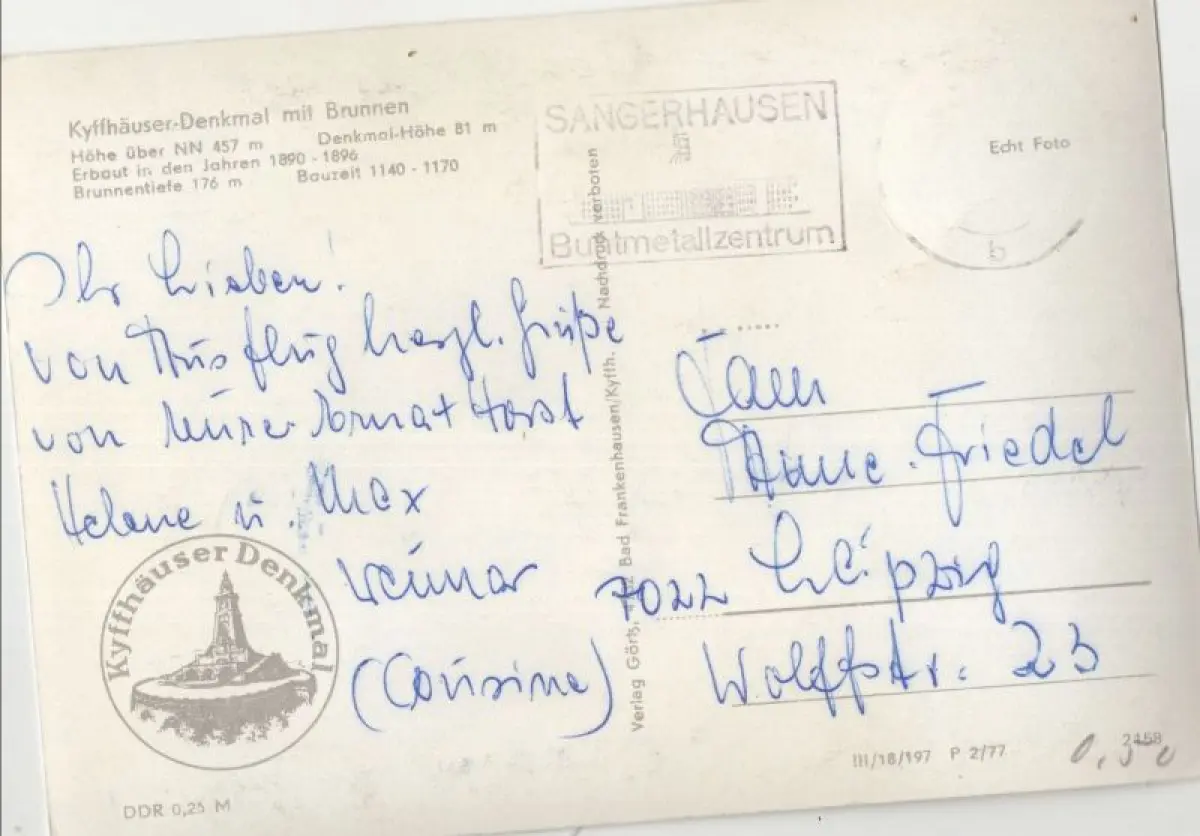 Kyffhäuser-Denkmal mit Brunnen
Höhe über NN 457 m Denkmal-Höhe 81 m
Erbaut in den Jahren 1890 - 1896
Brunnentiefe 176 m Bauzeit 1140 - 1170
SANGERHAUSEN
Buntmetallzentrum
Echt Foto
b
Ihr Lieben!
von Ausflug herzl. Grüße
von Horst
Helene u. Max
Weimar
(Cousine)
Kyffhäuser Denkmal
DDR 0,25 M
Verlag Görtz, Bad Frankenhausen/Kyffh. Nachdruck verboten
Fam
Friedel
7022 Leipzig
Wolffstr. 23
III/18/197 P 2/77